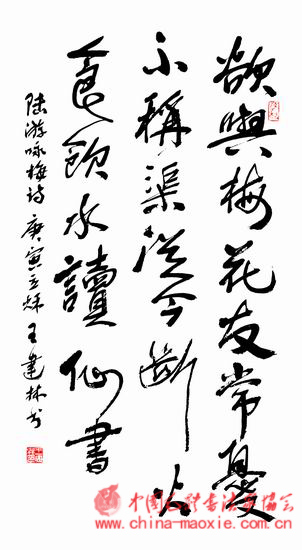 欲與梅花友常憂
不稱渠從今斷火
食飲水讀仙書
陆游咏梅诗 庚寅立秋 王建林书
中国毛笔书法家协会
www.china-maoxie.com.cn